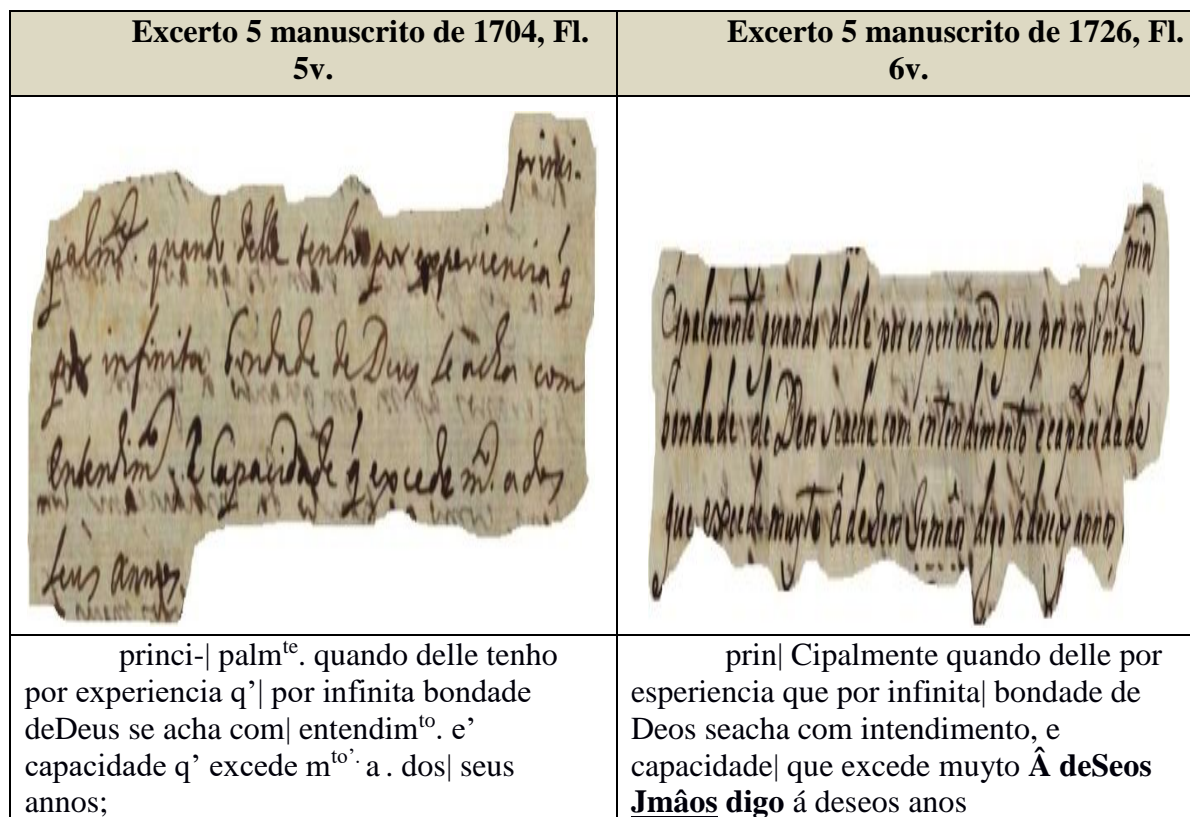 Excerto 5 manuscrito de 1704, Fl.
5v.
Excerto 5 manuscrito de 1726, Fl.
6v.
princi-
palm^te. quando delle tenho por experiencia q'
por infinita bondade de Deus se acha com
entendim^to. e Capacidade q' excede m^to. a dos
seus annos
prin
Cipalmente quando delle por esperiencia que por infinita
bondade de Deos seacha com intendimento e capacidade
que excede muyto â deSeos Jrmãos digo á deseos annos
princi-| palm^te. quando delle tenho
por experiencia q’| por infinita bondade
deDeus se acha com| entendim^to. e’
capacidade q’ excede m^to’. a . dos| seus
annos;
prin| Cipalmente quando delle por
esperiencia que por infinita| bondade de
Deos seacha com intendimento, e
capacidade| que excede muyto Â deSeos
Jmâos digo á deseos anos